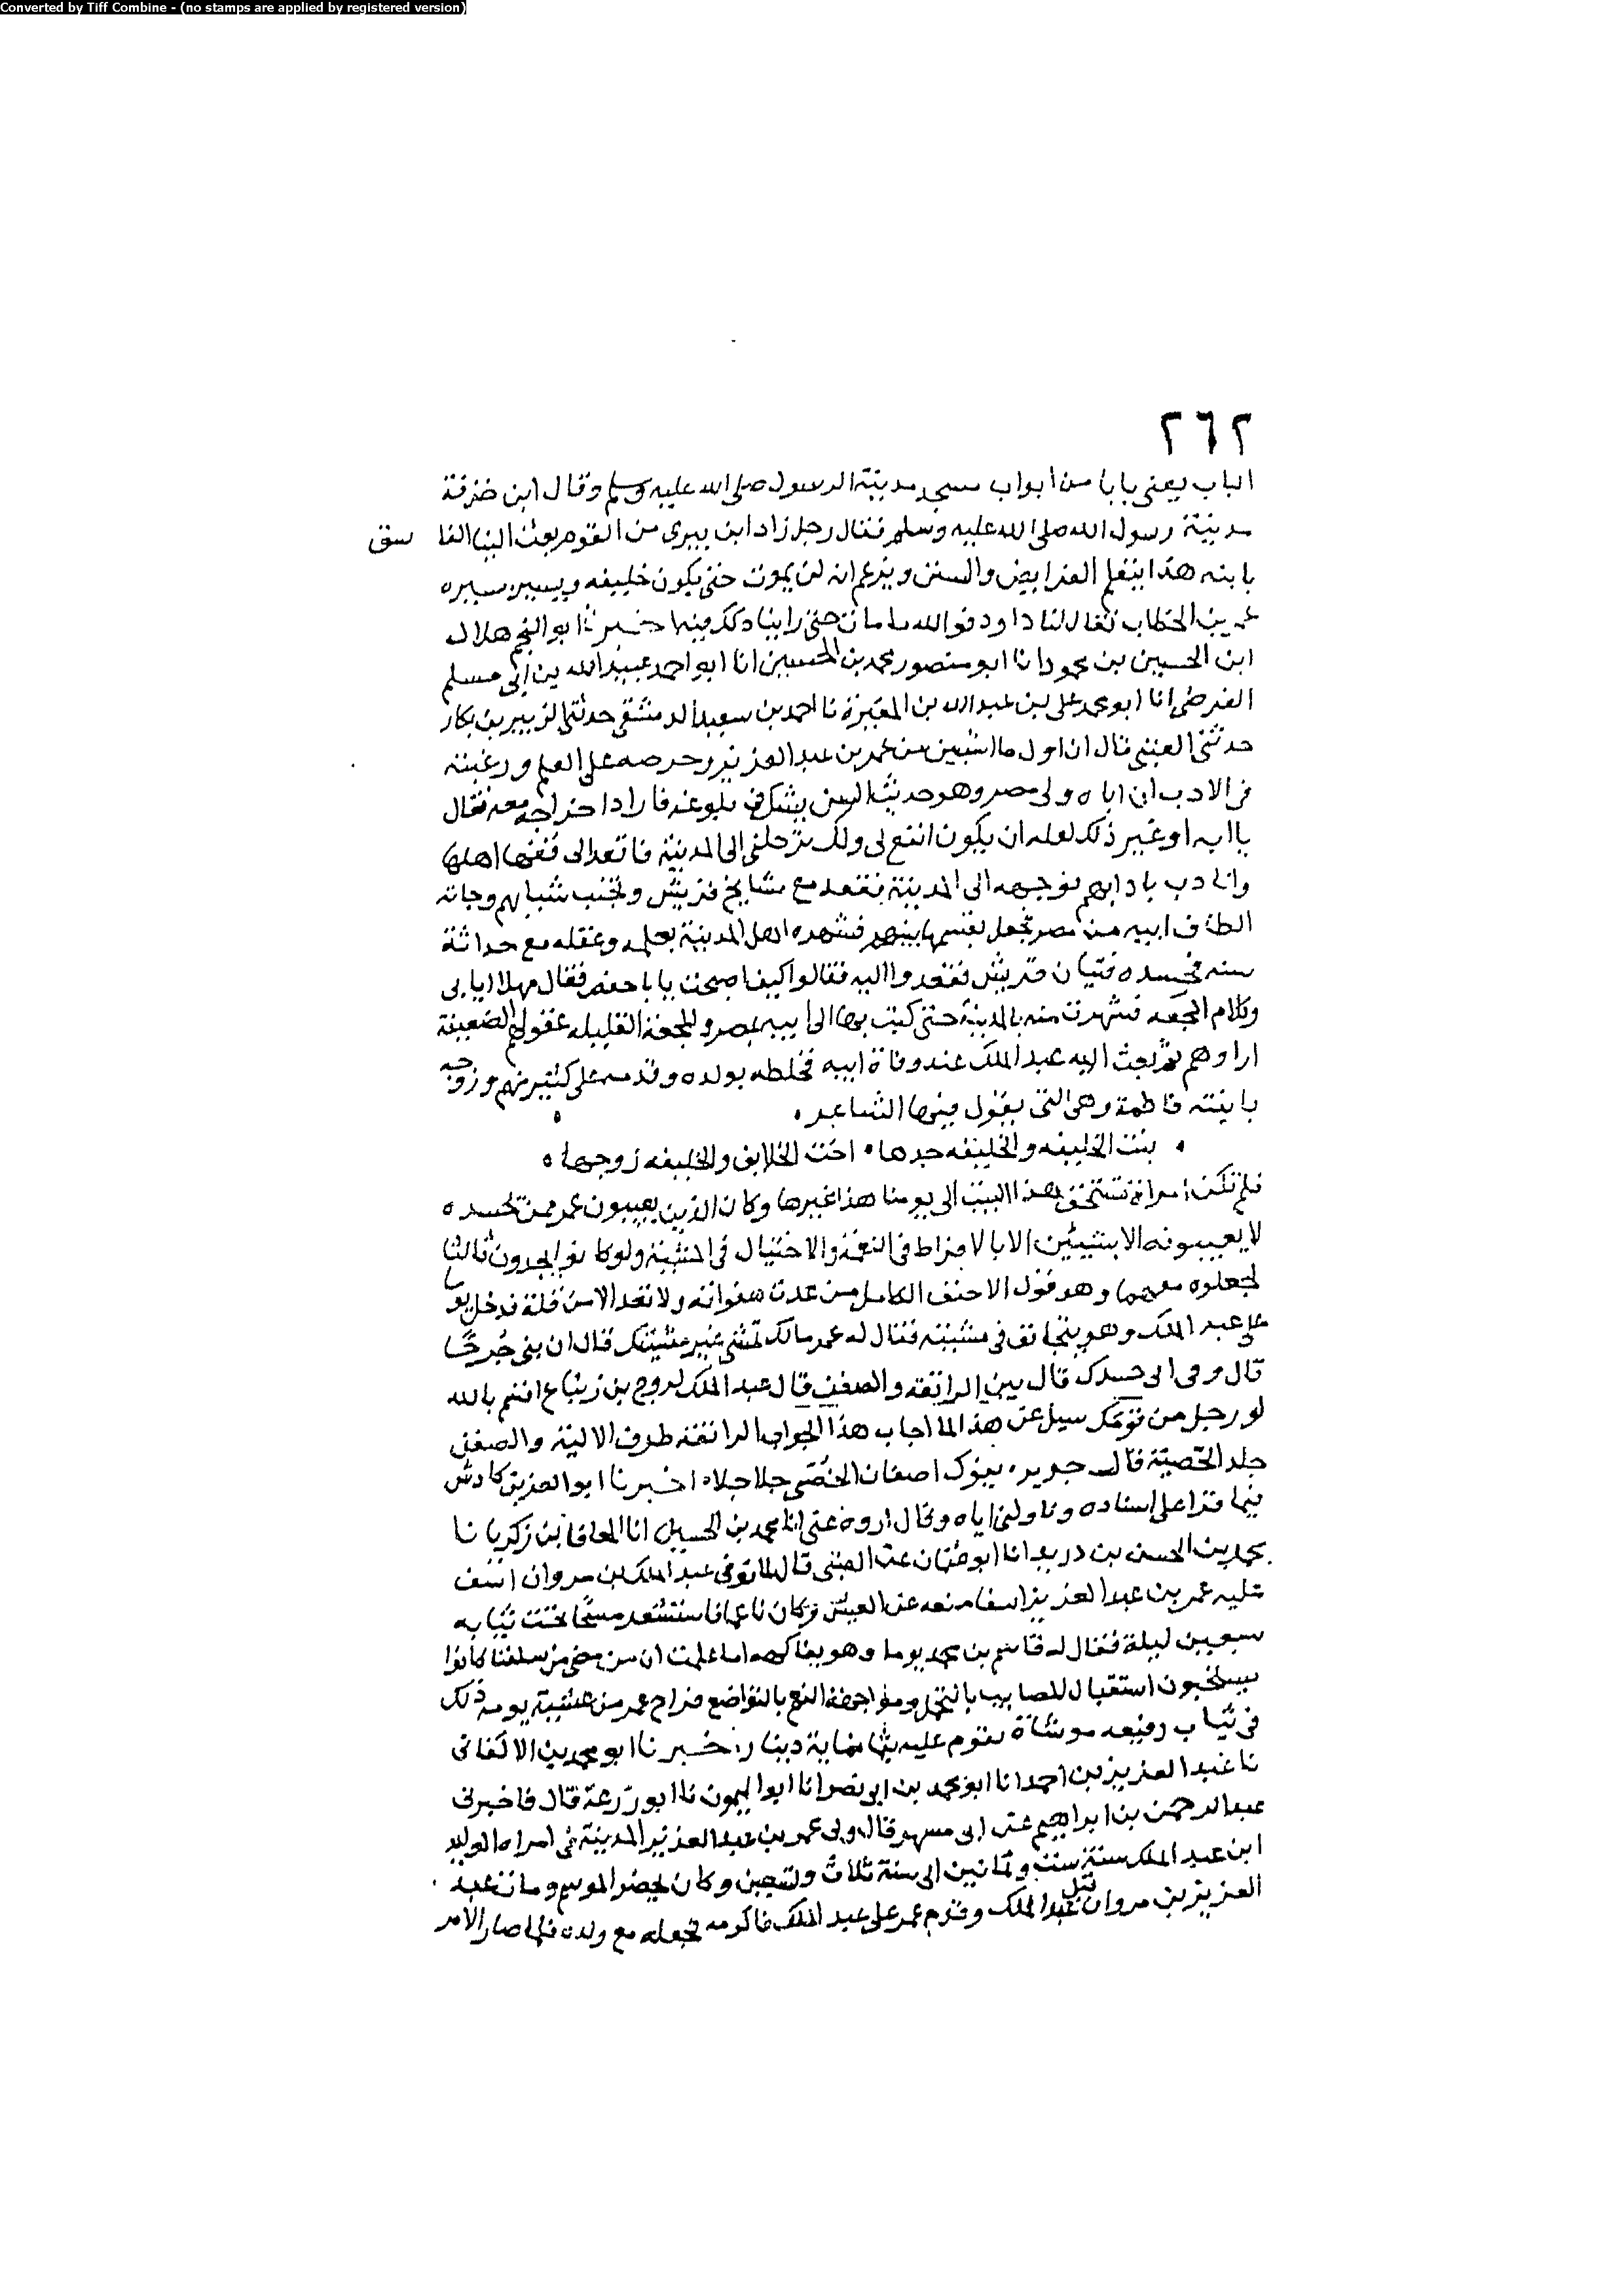 Converted by Tiff Combine - (no stamps are applied by registered version)
٢٦٢
الباب يعنى بابا من ابواب مسجد مدينة الرسول صلى الله عليه وسلم وقال ابن خزفة
مدينة رسول الله صلى الله عليه وسلم فقال رجل زاد ابن بيرى من القوم بعث الينا الفا سق
بابنه هذا يتعلم الفرايض والسنن ويزعم انه لن يموت حتى يكون خليفه ويسير سيره
عمر بن الخطاب فقال لنا داود فوالله ما مات حتى راينا ذلك فيه اخبرنا ابو النجم هلال
ابن الحسين بن محمود انا ابو منصور محمد بن الحسين انا ابو احمد عبيد الله بن ابى مسلم
الفرضى انا ابو محمد على بن عبد الله بن المغيرة نا احمد بن سعيد الدمشقى حدثنى الزبير بن بكار
حدثنى العتبى قال ان اول ما استبين من عمر بن عبد العزيز وحرصه على العلم ورغبته
فى الادب ان اباه ولى مصر وهو حديث السن يشك فى بلوغه فاراد اخراجه معه فقال
يا ابه او غير ذلك لعله ان يكون انفع لى ولك ترحلنى الى المدينة فاقعد الى فقهاء اهلها
واتادب بادابهم فوجهه الى المدينة فقعد مع مشايخ قريش وتجنب شبابهم وجاته
الطاف ابيه من مصر فجعل يقسمها بينهم فشهده اهل المدينة بعلمه وعقله مع حداثة
سنه فحسده فتيان قريش فقعدوا اليه فقالوا كيف اصبحت يا با حفص فقال مهلا اياى
وكلام المجعه فشهرت منه بالمدينة حتى كتب بها الى ابيه بمصر والمجعة القليله عقولهم الضعيفة
اراوهم ثم بعث اليه عبد الملك عند وفاة ابيه فخلطه بولده وقدمه على كثير منهم وزوجه
بابنته فاطمة وهى التى يقول فيها الشاعر ٠
٠ بنت الخليفه والخليفه جدها ٠ اخت الخلايف والخليفه زوجها ٥
فلم تكن امراة تستحق هذا البيت الى يومنا هذا غيرها وكان الذين يعيبون عمر ممن تحسده
لا يعيبونه الا بشيئين الا بالافراط فى النعمة والاختيال فى المشية ولو كانوا يجدون ثالثا
لجعلوه معهما وهو قول الاحنف الكامل من عدت هفواته ولا تعد الا من قلة فدخل يوما
على عبد الملك وهو يتجانف فى مشيته فقال له عمر مالك تمشى غير مشيتك قال ان بى جُرحًا
قال وفى اى جسدك قال بين الرانفه والصفن قال عبد الملك لروح بن زنباع اقسم بالله
لو رجل من قومك سيل عن هذا لما اجاب هذا الجواب الرانفة طرف الالية والصفن
جلد الخصية قال جرير ٠ يترك اصفان الخُصَى جلاجلا ٥ اخبرنا ابو العز بن كادش
فيما قرا على اسناده وناولنى اياه وقال اروه عنى انا محمد بن الحسين انا المعافا بن زكريا نا
محمد بن الحسن بن دريد انا ابو عثمان عن العتبى قال لما توفى عبد الملك بن مروان اسف
عليه عمر بن عبد العزيز اسفا منعه عن العيش وكان ناعما فاستشعر مسحًا تحت ثيابه
سبعين ليلة فقال له قاسم بن محمد يوما وهو يفاكهه اما علمت ان من مضى من سلفنا كانوا
يستحبون استقبال المصايب بالتجمل ومواجهة النعم بالتواضع فراح عمر من عشية يومه ذلك
فى ثياب رفيعه موشاة تقوم عليه بثمانماية دينار اخبرنا ابو محمد بن الاكفانى
نا عبد العزيز بن احمد انا ابو محمد بن ابى نصر انا ابو الميمون نا ابو زرعة قال فاخبرنى
عبد الرحمن بن ابراهيم عن ابى مسهر قال ولى عمر بن عبد العزيز المدينة فى امراه الوليد
ابن عبد الملك سنة ست وثمانين الى سنة ثلاث وتسعين وكان يحضر الموسم ومات عبد
العزيز بن مروان قبل عبد الملك وقدم عمر على عبد الملك فاكرمه فجعله مع ولده فلما صار الامر